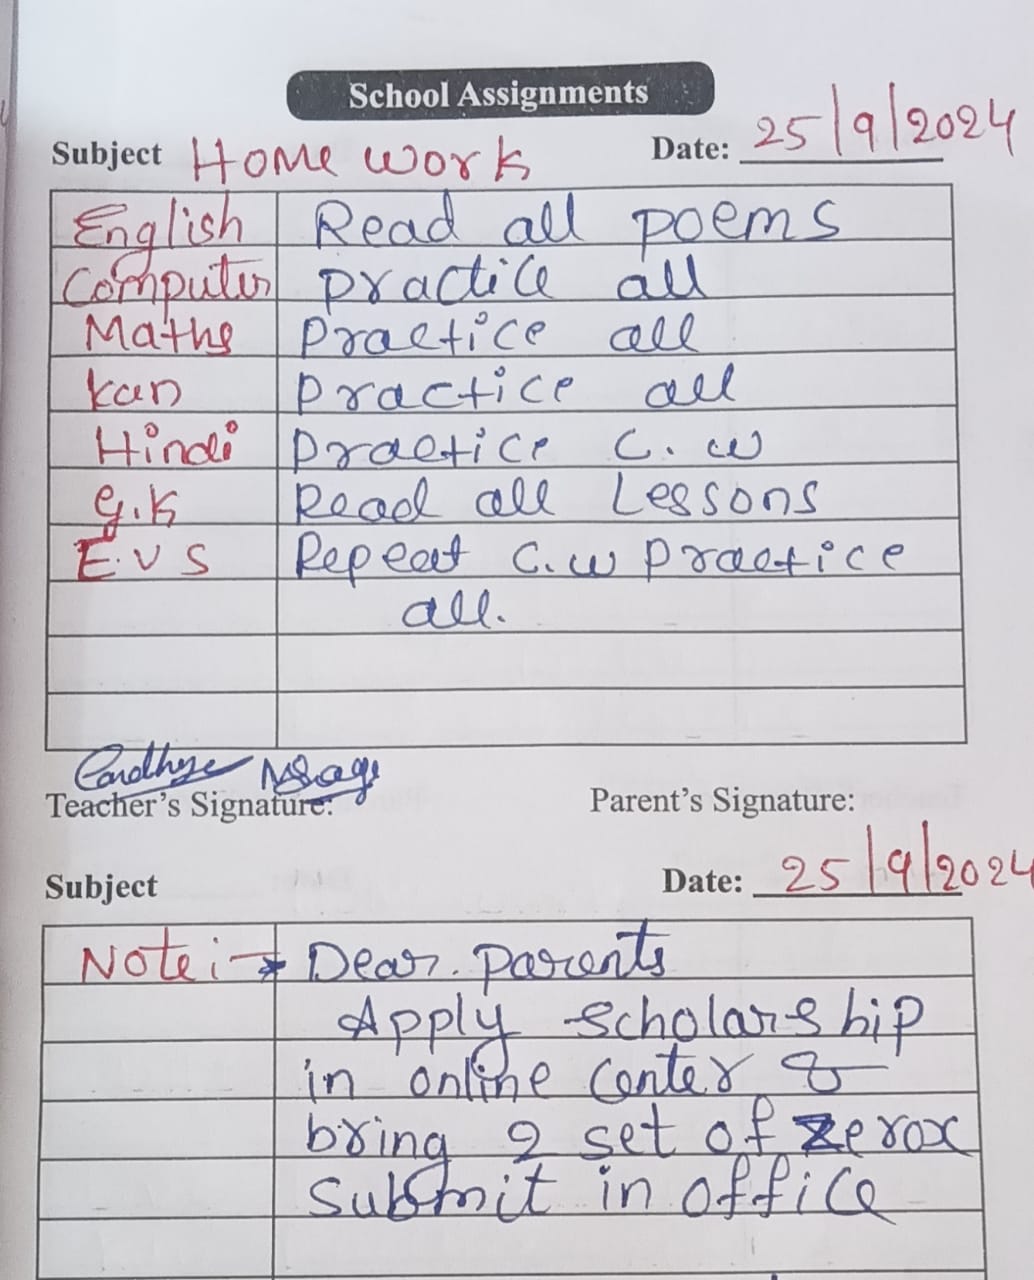 School Assignments
Subject Home work Date: 25/9/2024
English Read all poems
Computer practice all
Maths Practice all
kan Practice all
Hindi practice C. w
G.K Read all Lessons
E.V S Repeat C.w Practice
all.
Teacher's Signature: Parent's Signature:
Subject Date: 25/9/2024
Note:→ Dear. parents
Apply scholarship
in online center &
bring 2 set of zerox
Submit in office